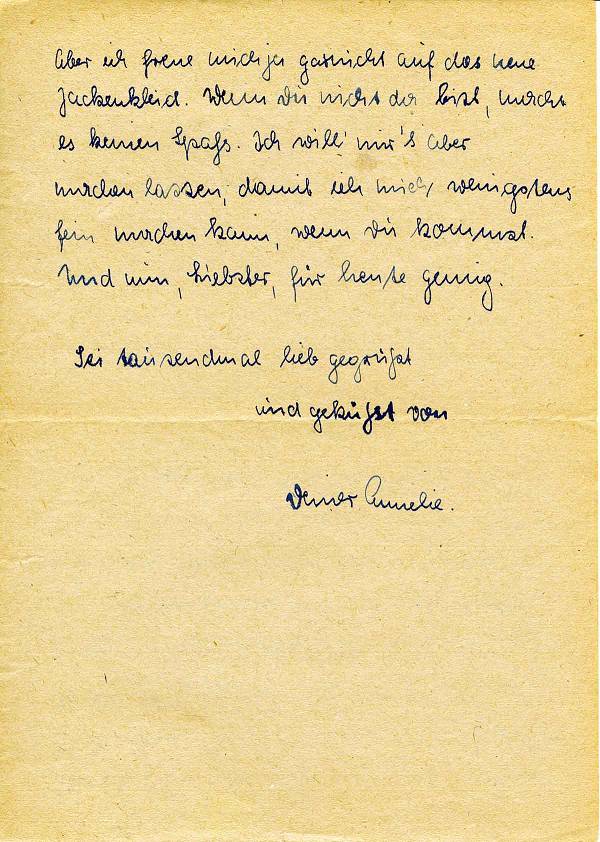 Aber ich freue mich ja garnicht auf das neue
Jackenkleid. Wenn Du nicht da bist, macht
es keinen Spaß. Ich will mir's aber
machen lassen, damit ich mich wenigstens
fein machen kann, wenn Du kommst.
Und nun, Liebster, für heute genug.
Sei tausendmal lieb gegrüßt
und geküßt von
Deiner Annelie.